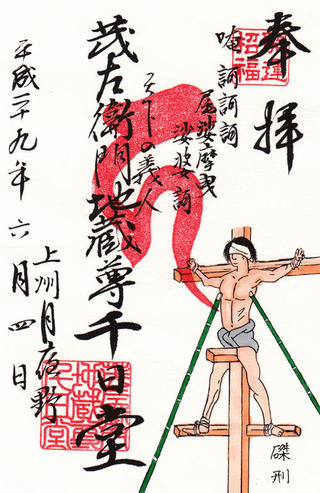 奉拝
開運
招福
唵訶訶訶
尾娑摩曳
娑婆訶
天下の義人
茂左衛門地蔵尊千日堂
上州月夜野
平成二十九年六月四日
磔刑